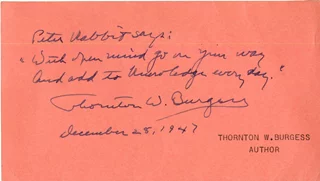 Peter Rabbit says:
"With open mind go on your way
And add to knowledge every day."
Thornton W. Burgess
December 28, 1947
THORNTON W. BURGESS
AUTHOR